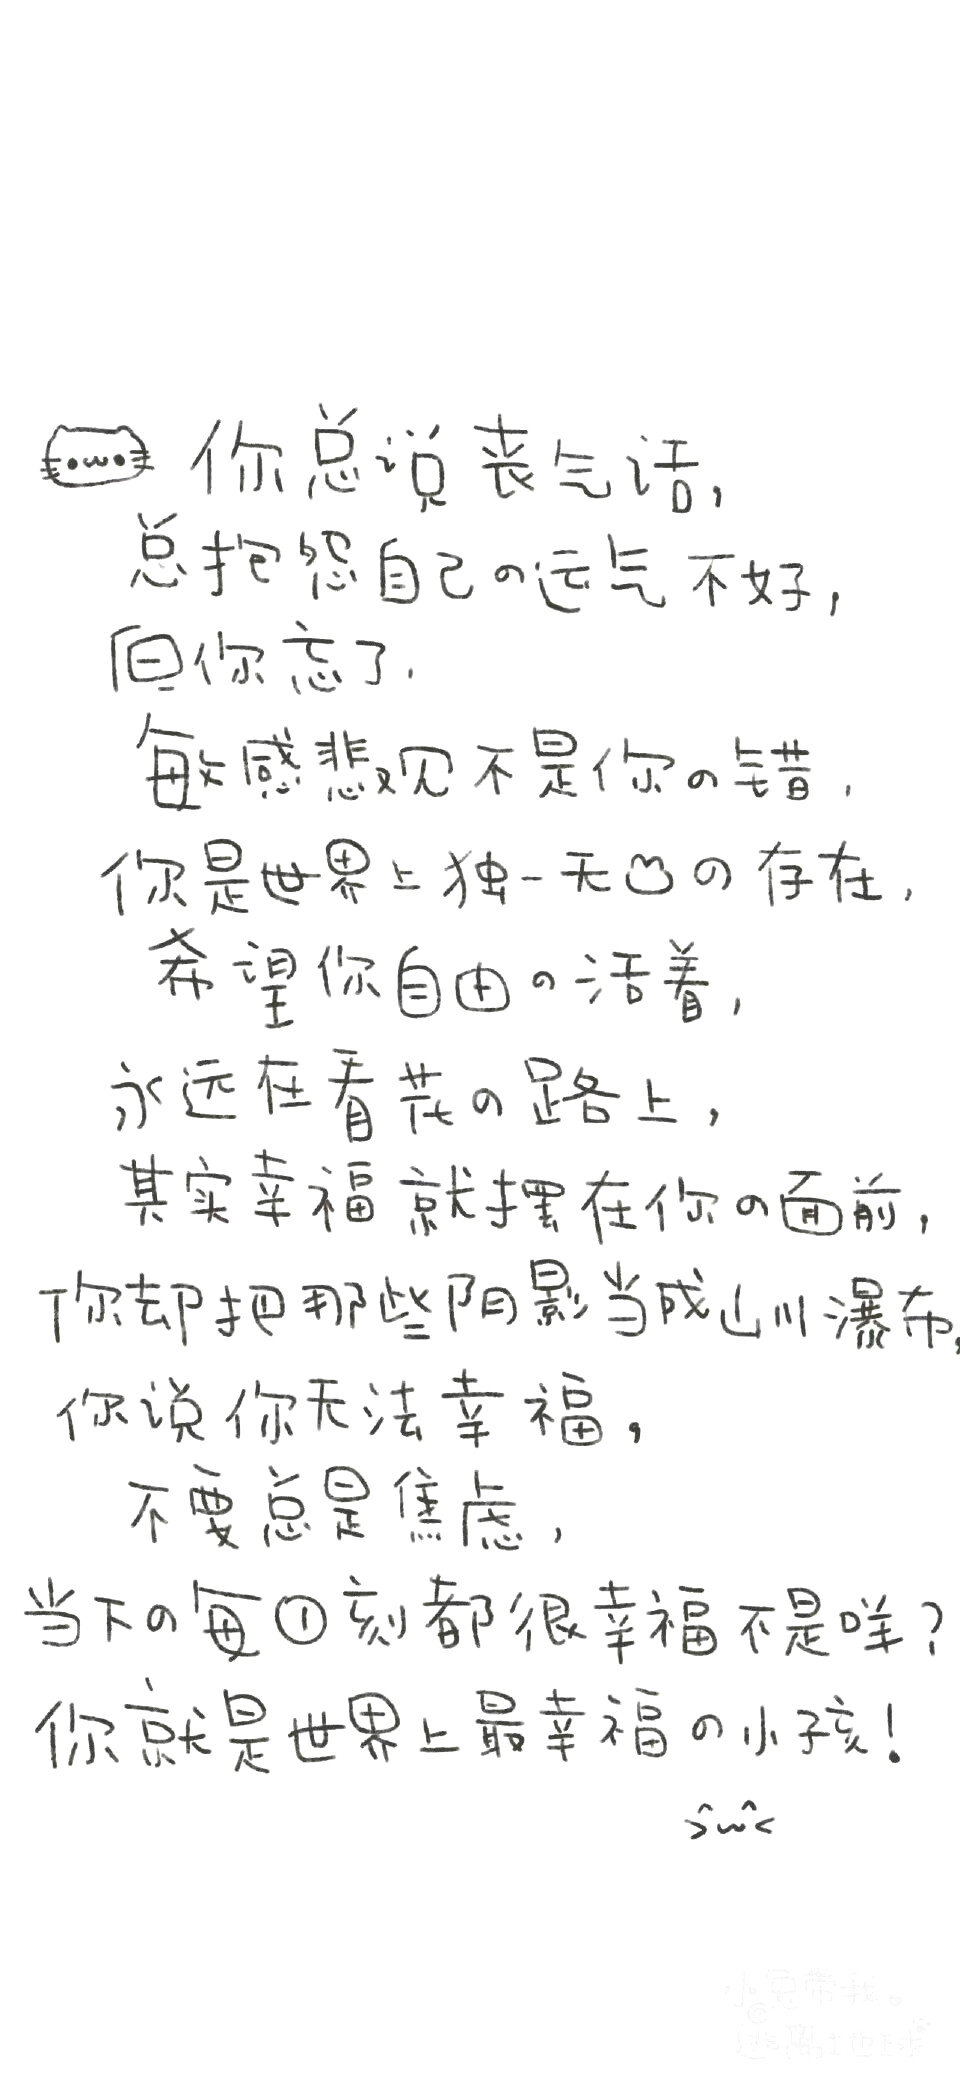 你总说丧气话,
总抱怨自己の运气不好,
但你忘了,
敏感悲观不是你の错,
你是世界上独一无凹の存在,
希望你自由の活着,
永远在看花の路上,
其实幸福就摆在你の面前,
你却把那些阴影当成山川瀑布,
你说你无法幸福,
不要总是焦虑,
当下の每①刻都很幸福不是咩?
你就是世界上最幸福の小孩!
小兔带我。
逃离地球